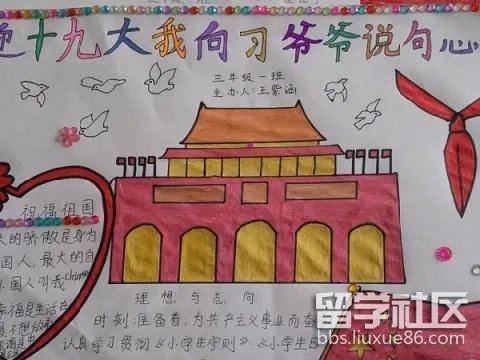 迎十九大我向习爷爷说句心
三年级一班
主办人:王紫涵
祝福祖国
大的骄傲是身为
国人,最大的自
外国人叫我China
幸福是生活在
理想与志向
时刻准备着,为共产主义事业而奋
认真学习贯彻《小学生守则》、《小学生日
留学社区
bbs.liuxue86.com